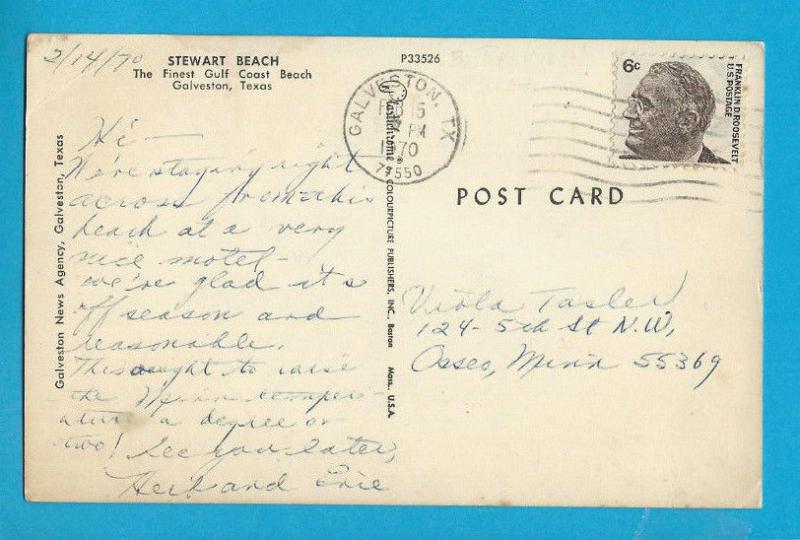 2/14/70
STEWART BEACH
The Finest Gulf Coast Beach
Galveston, Texas
P33526
GALVESTON, TX
FEB 15
PM
1970
77550
6c
FRANKLIN D. ROOSEVELT
U.S. POSTAGE
Hi —
We're staying right
across from this
beach at a very
nice motel —
we're glad it's
off season and
reasonable.
This ought to raise
the Minn temper-
ature a degree or
two! See you later,
and
Galveston News Agency, Galveston, Texas
COLOURPICTURE PUBLISHERS, INC. Boston Mass. U.S.A.
POST CARD
Viola Tasler
124-5th St N.W,
Osseo, Minn 55369